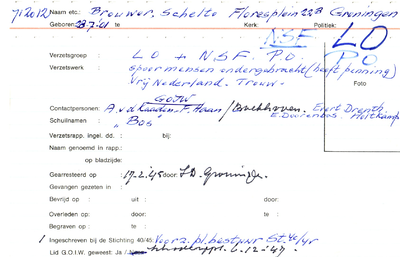 7/2012 Naam etc.: Brouwer. Schelto Floresplein 22B Groningen
Geboren: 23-7-'21 te Kerk: Politiek: LO
N.S.F. P.O
Verzetsgroep : LO + N.S.F. P.O.
Verzetswerk spoormensen ondergebracht (heeft penning)
Vrij Nederland. Trouw.
Foto
GOIW
Contactpersonen: A. v.d. Haan / Boekhoven. Evert Drenth
Schuilnamen : „Bos" E. Doorenbos. Holtkamp
Verzetsrapp. ingel. dd. : bij:
Naam genoemd in rapp.:
op bladzijde:
Gearresteerd op : 17-2-'45 door: S.D. Groningen.
Gevangen gezeten in :
Bevrijd op : uit : door:
Overleden op: : door: te:
Begraven op : te :
1 Ingeschreven bij de Stichting 40/45: Voorz. pl. bestuur St. 40/45
Lid G.O.I.W. geweest: Ja / 6-12-'47